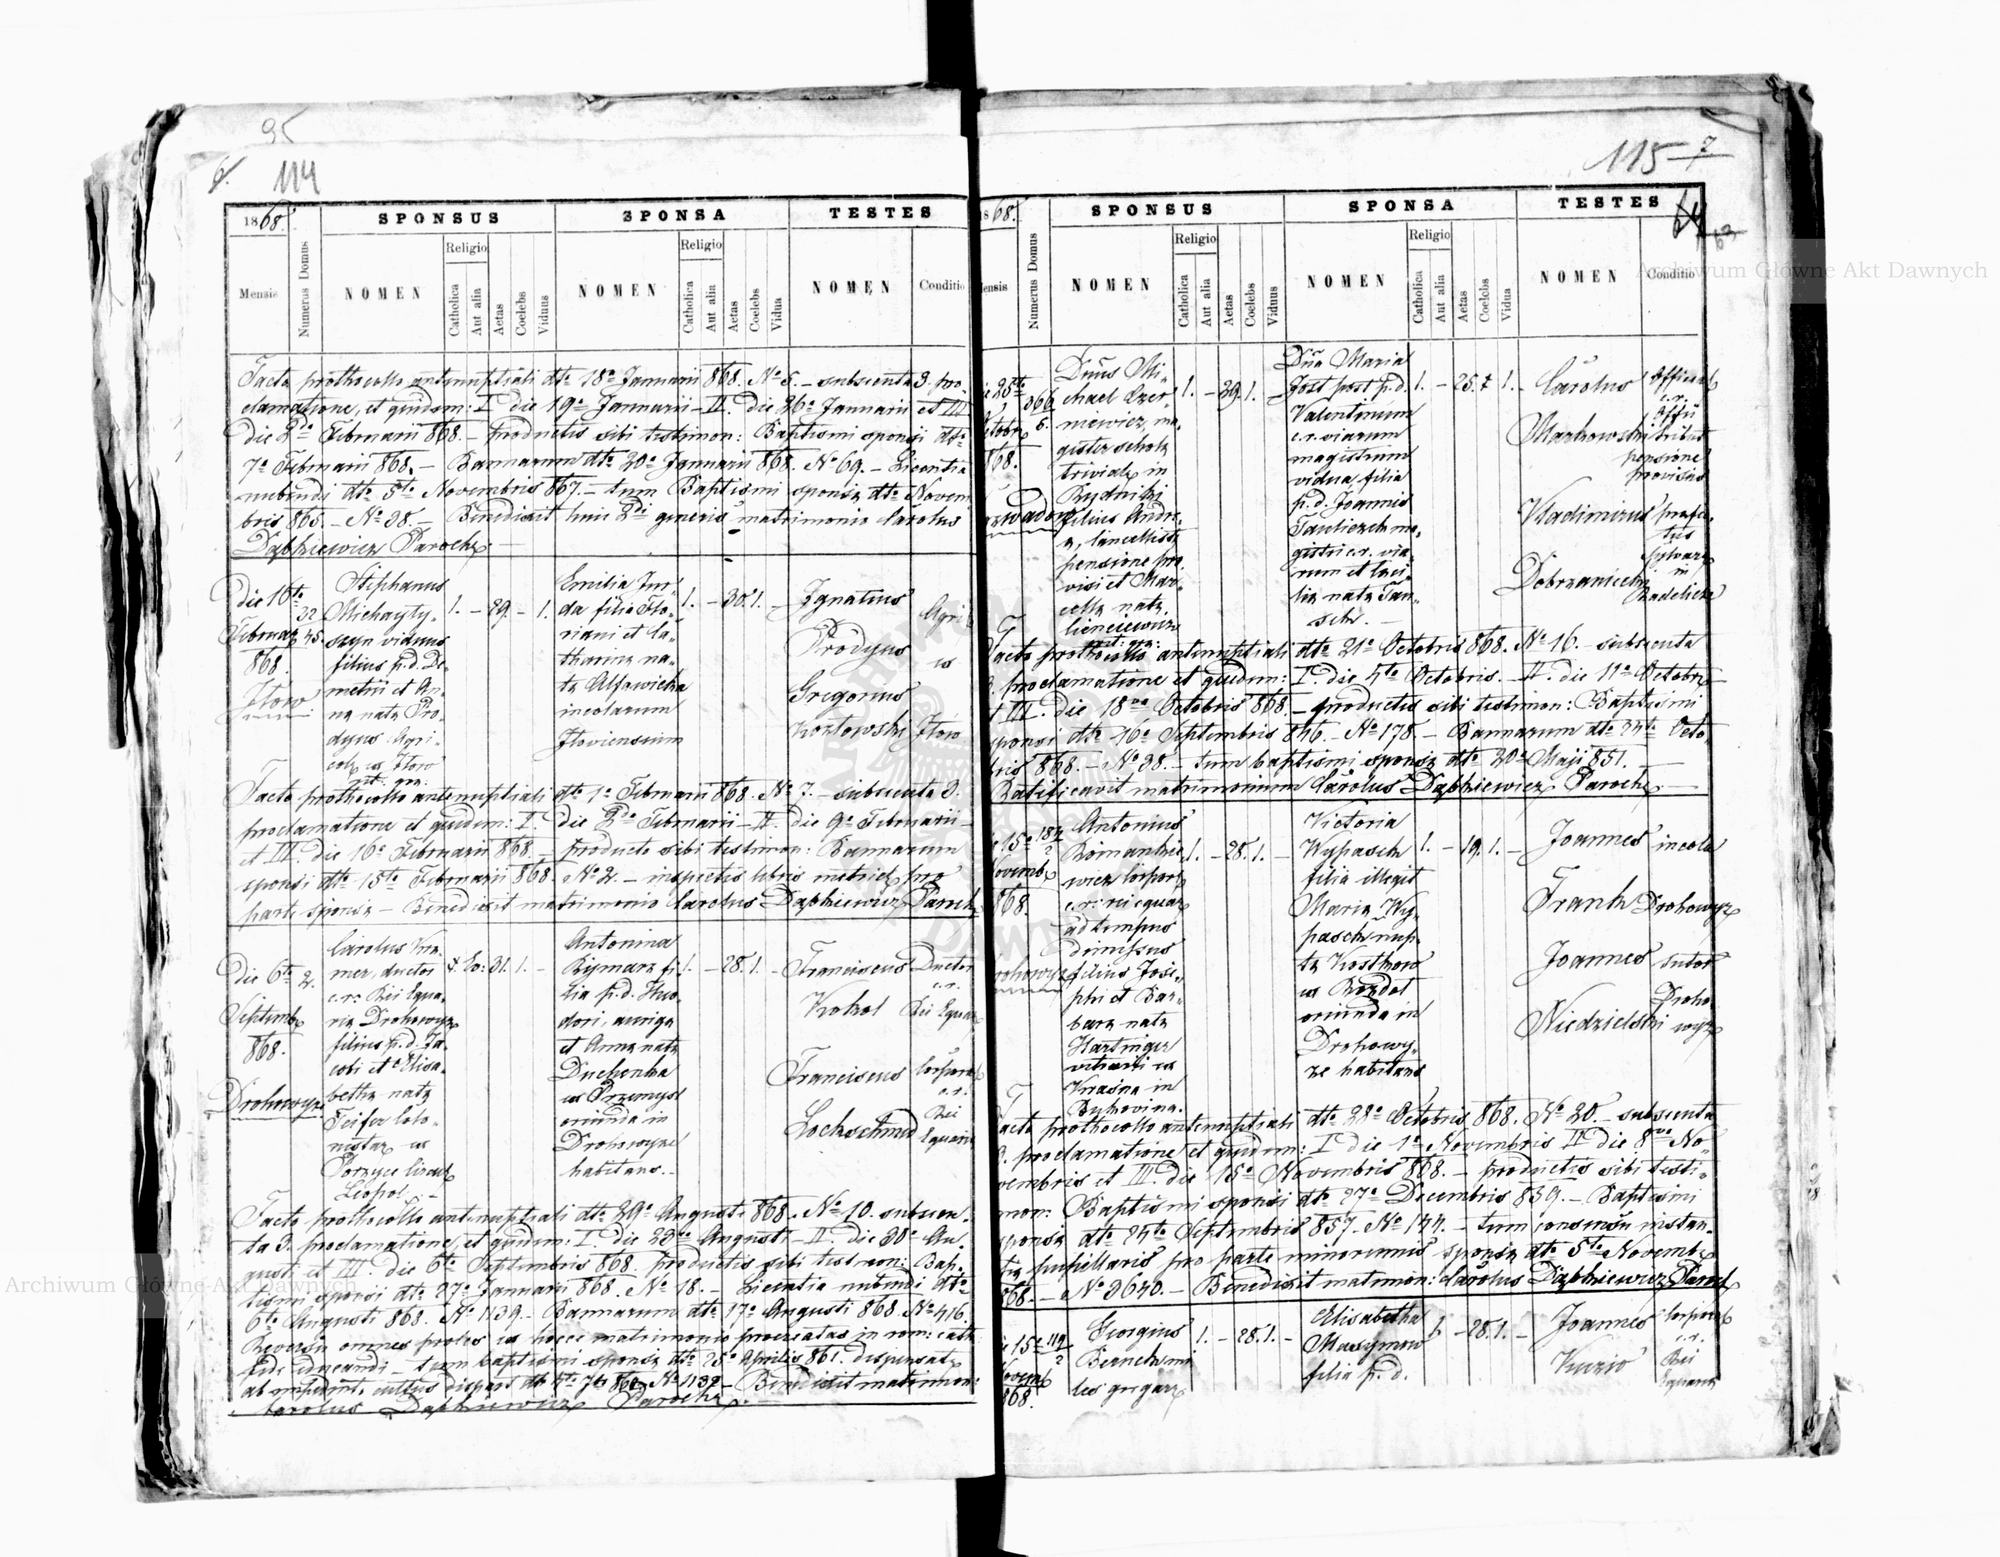 95
6.
114
1868.
SPONSUS
SPONSA
TESTES
Mensis
Numerus Domus
NOMEN
Religio
Catholica
Aut alia
Aetas
Coelebs
Viduus
NOMEN
Religio
Catholica
Aut alia
Aetas
Coelebs
Vidua
NOMEN
Conditio
Facto prothocollo antenuptiali dto 18a Januarii 868. No 5. – subsecuta 3. pro
clamatione, et quidem: I. die 19a Januarii – II. die 26a Januarii et III
die 2da Februarii 868. – productis sibi testimon: Baptismi sponsi dto
7a Februarii 868. – Bannorum dto 20a Januarii 868. No 69. – Licentia
nubendi dto 5ta Novembris 867. – tum Baptismi sponsæ dto Novem
bris 865. – No 28. – Benedixit huic 2di generis matrimonio Carolus
Dąbkiewicz Paroch.
Die 16ta
32
45.
Februar
868.
Iłow
Stephanus
Michayly-
szyn viduus
filius p.d. De-
metrii et An-
na nata Pro-
dyus Agri-
colæ ex Iłow
rit. gra:
1. – 29. – 1.
Emilia Jur-
da filia Flo-
riani et Ca-
tharinæ na-
ta Alfawicka
incolarum
Iloviensium
1. – 30. 1. –
Ignatius
Prodyus
Gregorius
Kozłowski
Agric
ex
Iłow
Facto prothocollo antenuptiali dto 1a Februarii 868. No 7. – subsecuta 3.
proclamatione et quidem: I. die 2da Februarii – II. die 9a Februarii –
et III. die 16a Februarii 868. – producto sibi testimon: Bannorum
sponsi dto 15ta Februarii 868. No 2. – inspectis libris metric. pro
parte sponsæ – Benedixit matrimonio Carolus Dąbkiewicz Paroch
Die 6ta
2.
Septemb
868.
Drohowyże
Carolus Kra-
mer, ductor
c.r. Rei Equa-
riæ Drohowyż
filius p.d. Ja-
cobi et Elisa-
betha nata
Feifer Colo-
nistar. ex
Porzyce Circul
Leopol. –
31. 1. –
Antonina
Rijmarz fi-
lia p.d. Theo-
dori, auriga
et Anna nata
Duchonka
ex Przemysl
oriunda in
Drohowyże
habitans. –
1. – 28. 1. –
Franciscus
Kokol
Franciscus
Lockschmid
Ductor
c.r.
Rei Equar
Corporal
c.r.
Rei
Equaria
Facto prothocollo antenuptiali dto 29a Augusti 868. No 10. subsecu-
ta 3. proclamatione, et quidem: I. die 23a Augusti – II. die 30a Au-
gusti et III. die 6ta Septembris 868. productis sibi testimon: Bap-
tismi sponsi dto 27a Januarii 868. No 18. – Licentia nubendi dto
6ta Augusti 868. No 1139. – Bannorum dto 17a Augusti 868. No 416.
Reversu omnes proles ex hocce matrimonio procreatas in rom: cath:
fide educandi – tum baptismi sponsæ dto 25a Aprilis 861. dispensat.
ab impedimto cultus dispars dto No 1139 – Benedixit matrimon:
Carolus Dąbkiewicz Paroch.
115
7.
63
1868.
SPONSUS
SPONSA
TESTES
Mensis
Numerus Domus
NOMEN
Religio
Catholica
Aut alia
Aetas
Coelebs
Viduus
NOMEN
Religio
Catholica
Aut alia
Aetas
Coelebs
Vidua
NOMEN
Conditio
ie 25ta
366
6.
ctobr
868.
ozwadow
Dnus Mi-
chael Czer-
niewicz, ma-
gister scholæ
trivialis in
Rudniki
filius Andre-
æ, Cancellistæ
pensione pro-
visi et Mar-
cella nata
Cienciewicz
rit: gra:
1. – 29. 1. –
Dna Maria
Jost post p.d.
Valentinum
c.r. viarum
magistrum
vidua, filia
p.d. Joannis
Tautiezek ma-
gistri c.r. via-
rum et Cæci-
lia nata Jan-
schr. –
1. – 25. – 1. –
Carolus
Markowski
Vladimirus
Dobrzaniecki
Official
c.r.
Offici
tribut
pensione
provisus
præfec-
tus
sylvar
in
Radelicze
Facto prothocollo antenuptiali dto 21a Octobris 868. No 16. – subsecuta
3. proclamatione et quidem: I. die 4ta Octobris. – II. die 11a Octobris
et III. die 18va Octobris 868. – productis sibi testimon: Baptismi
sponsi dto 26a Septembris 846. – No 178. – Bannorum dto 24ta Octo-
bris 868. – No 28. – tum baptismi sponsæ dto 20a Maji 851. –
Ratificavit matrimonium Carolus Dąbkiewicz Paroch. –
e 15a
184
2
Novemb
868.
rohowyże
Antonius
Romanke-
wicz Corporal
c.r. rei equar
ad tempus
dimissus
filius Jose-
phi et Bar-
bara nata
Hartinger
ex
Krasna in
Bukovina.
1. – 28. 1. –
Victoria
Wypasek
filia illegit
Maria Wy-
pasek nup-
ta Kostkow
ex Rozdol
oriunda in
Drohowy-
że habitans
1. – 19. 1. –
Joannes
Frank
Joannes
Niedzielski
incola
Drohowyż
sutor
Droho-
wyż
Facto prothocollo antenuptiali dto 28a Octobris 868. No 20. – subsecuta
3. proclamatione et quidem: I die 1a Novembris II. die 8va No-
vembris et III. die 15a Novembris 868. – productis sibi testi-
mon: Baptismi sponsi dto 27a Decembris 839. – Baptismi
sponsæ dto 24ta Septembris 857. No 144. – tum consensu instan-
tiæ pupillaris pro parte minorennis sponsæ dto 5ta Novemb
868. – No 3640. – Benedixit matrimon: Carolus Dąbkiewicz Paroch
e 15a
119
2
Novemb
868.
Georgius
Bernek mi
les gregar
1. – 28. 1. –
Elisabetha
Masymow
filia p.d.
1. – 28. 1. –
Joannes
Kuzio
Corporal
c.r.
Rei
Equariæ
Archiwum Główne Akt Dawnych
Archiwum Główne Akt Dawnych